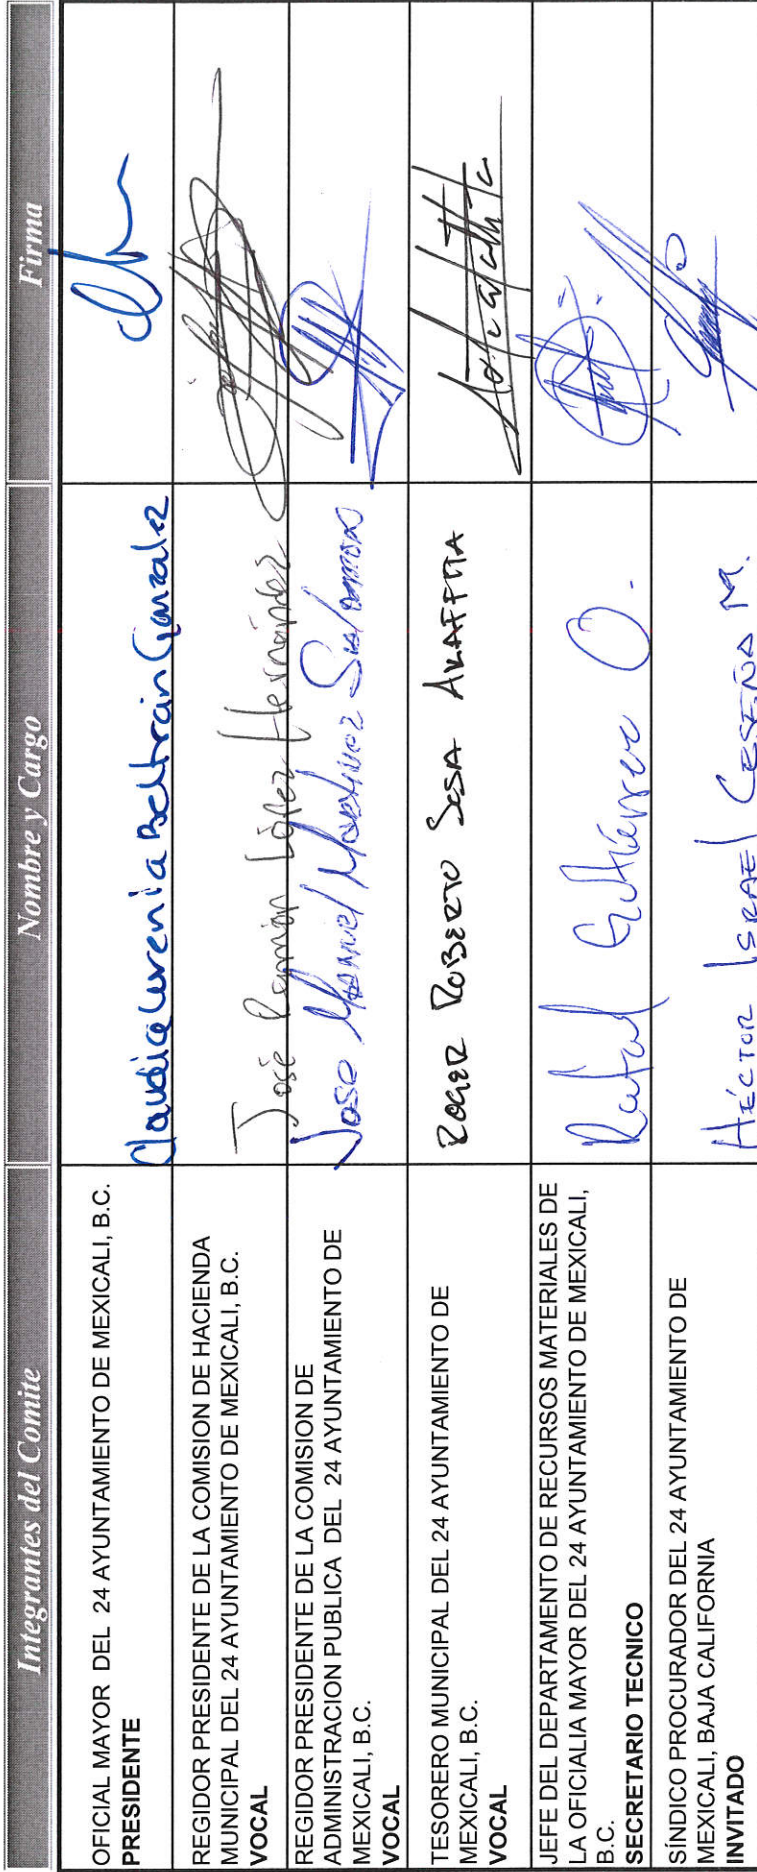 Integrantes del Comite
Nombre y Cargo
Firma
OFICIAL MAYOR DEL 24 AYUNTAMIENTO DE MEXICALI, B.C.
PRESIDENTE
Claudia Lorenia Beltrán Gonzalez
REGIDOR PRESIDENTE DE LA COMISION DE HACIENDA
MUNICIPAL DEL 24 AYUNTAMIENTO DE MEXICALI, B.C.
VOCAL
José Ramón López Hernández
REGIDOR PRESIDENTE DE LA COMISION DE
ADMINISTRACION PUBLICA DEL 24 AYUNTAMIENTO DE
MEXICALI, B.C.
VOCAL
Jose Manuel Martinez Salomon
TESORERO MUNICIPAL DEL 24 AYUNTAMIENTO DE
MEXICALI, B.C.
VOCAL
ROGER ROBERTO SOSA ALAFFITA
JEFE DEL DEPARTAMENTO DE RECURSOS MATERIALES DE
LA OFICIALIA MAYOR DEL 24 AYUNTAMIENTO DE MEXICALI,
B.C.
SECRETARIO TECNICO
Rafael Gutiérrez O.
SÍNDICO PROCURADOR DEL 24 AYUNTAMIENTO DE
MEXICALI, BAJA CALIFORNIA
INVITADO
HÉCTOR ISRAEL CESEÑA M.